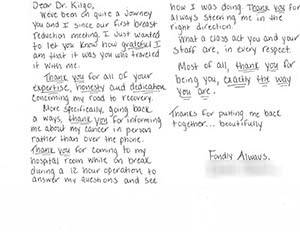 Dear Dr. Kilgo,
We've been on quite a journey
you and I since our first breast
reduction meeting. I just wanted
to let you know how grateful I
am that it was you who traveled
it with me.
Thank you for all of your
expertise, honesty and dedication
concerning my road to recovery.
More specifically, going back
a ways, thank you for informing
me about my cancer in person
rather than over the phone.
Thank you for coming to my
hospital room while on break
during a 12 hour operation, to
answer my questions and see
how I was doing. Thank you for
always steering me in the
right direction.
What a class act you and your
staff are, in every respect.
Most of all, thank you for
being you, exactly the way
you are.
Thanks for putting me back
together... beautifully
Fondly Always,